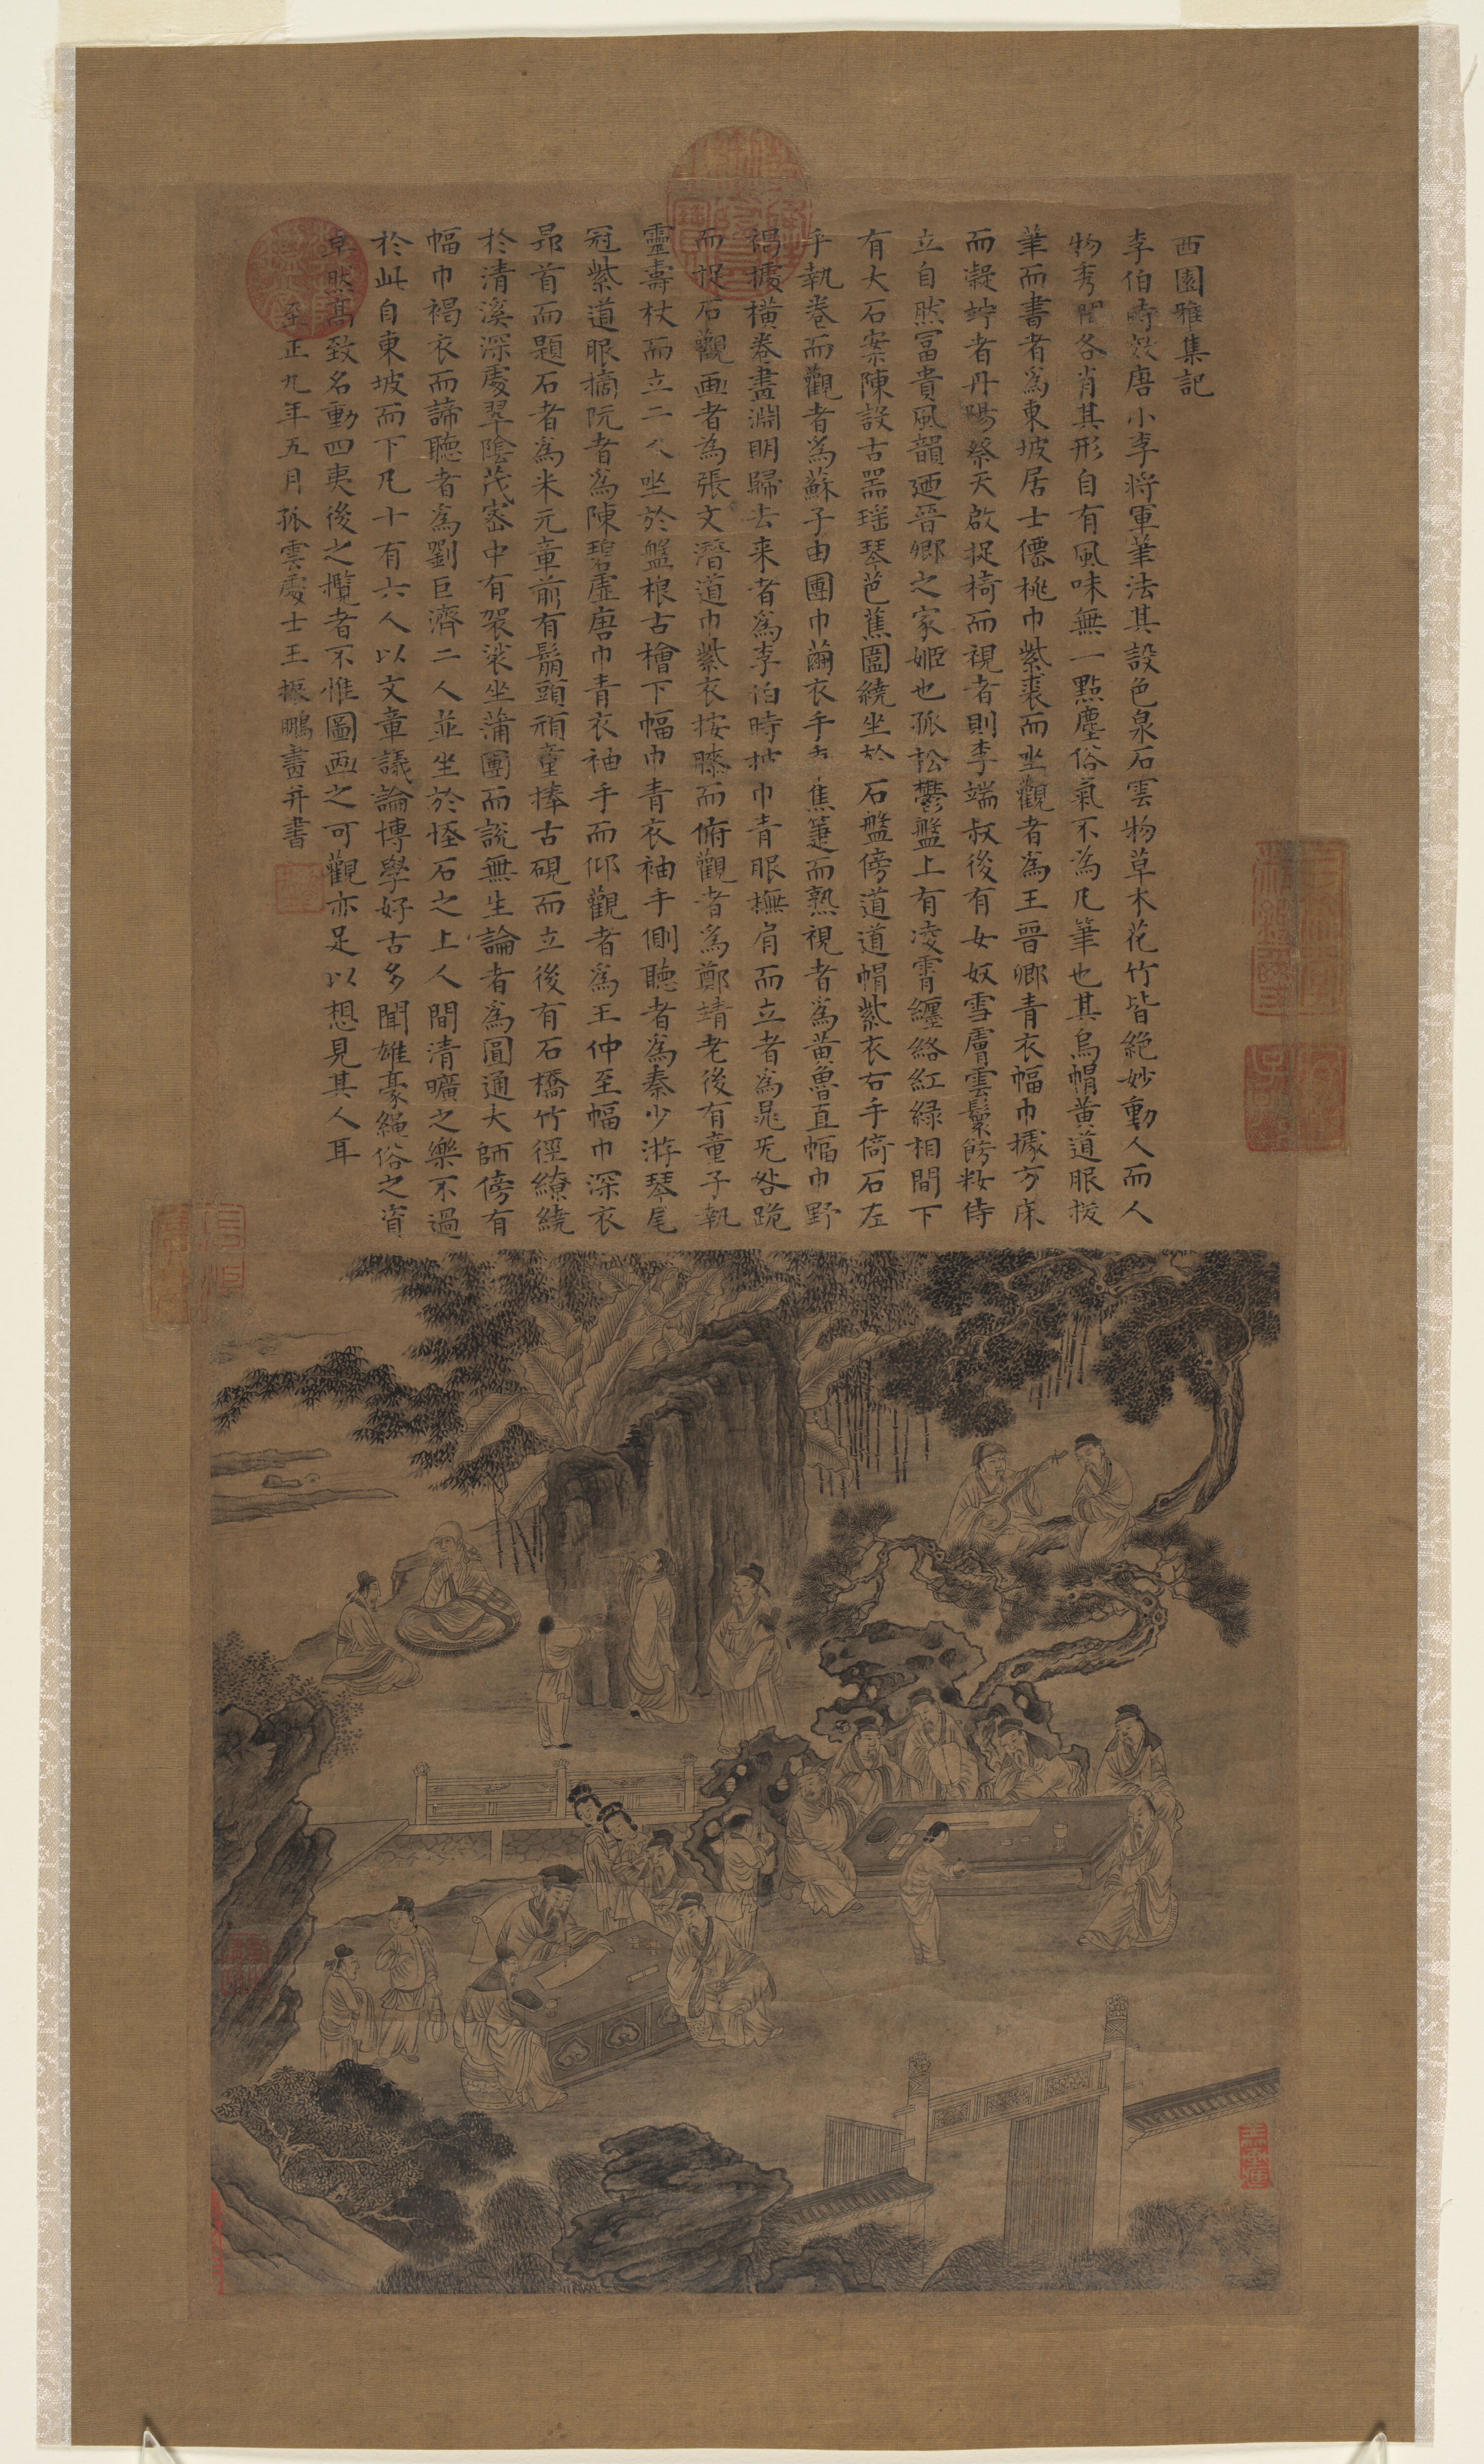 西園雅集記
李伯時效唐小李將軍筆法其設色泉石雲物草木花竹皆絶妙動人而人
物秀各肖其形自有風味無一點塵俗氣不為凡筆也其烏帽黄道服提
筆而書者為東坡居士僊桃巾紫裘而坐觀者為王晉卿青衣幅巾據方床
而凝竚者丹陽蔡天啟捉椅而視者則李端叔後有女奴雪膚雲鬟飾粧侍
立自然冨貴風韻廼晉卿之家姬也孤松鬱盤上有凌霄纏絡紅綠相間下
有大石案陳設古噐瑶琴芭蕉圍繞坐於石盤傍道道帽紫衣右手倚石左
手執卷而觀者為蘇子由團巾繭衣手焦箑而熟視者為黄魯直幅巾野
褐據橫卷畫淵明歸去来者為李伯時披巾青服撫肩而立者為晁无咎跪
而捉石觀画者為張文潛道巾紫衣按膝而俯觀者為鄭靖老後有童子執
靈壽杖而立二人坐於盤根古檜下幅巾青衣袖手側聽者為秦少游琴尾
冠紫道服摘阮者為陳碧虛唐巾青衣袖手而仰觀者為王仲至幅巾深衣
昂首而題石者為米元章前有鬅頭頑童捧古硯而立後有石橋竹徑繚繞
於清溪深處翠陰茂密中有袈裟坐蒲團而說無生論者為圓通大師傍有
幅巾褐衣而諦聽者為劉巨濟二人並坐於怪石之上人間清曠之樂不過
於此自東坡而下凡十有六人以文章議論博學好古多聞雄豪絕俗之資
卓然髙致名動四夷後之攬者不惟圖画之可觀亦足以想見其人耳
至正九年五月孤雲處士王振鵬畫并書